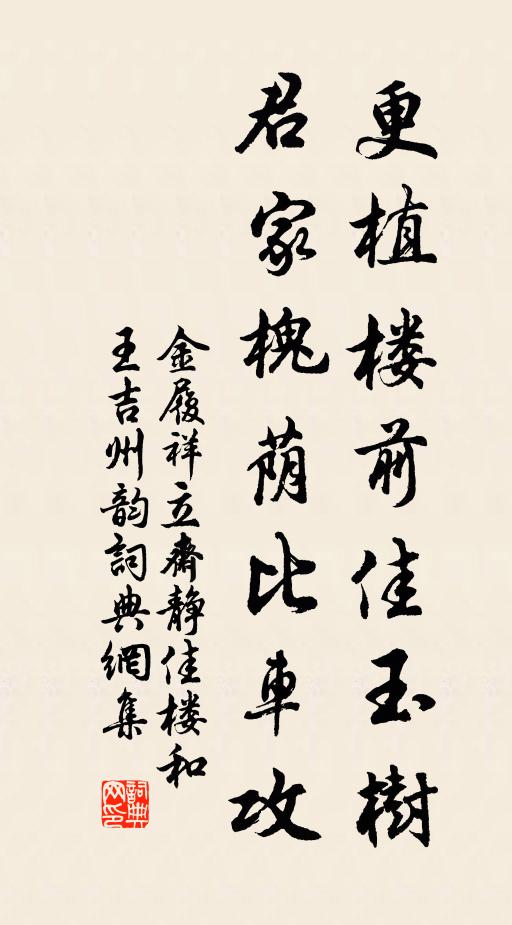 更植楼前佳玉樹
君家槐荫比車攻
金履祥立齋靜佳楼和
王吉州韵詞典網集
詞典网印